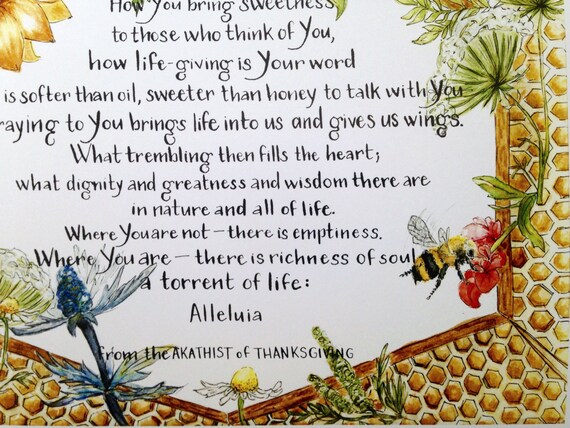 How You bring sweetness
to those who think of You,
how life-giving is Your word
is softer than oil, sweeter than honey to talk with You
raying to You brings life into us and gives us wings.
What trembling then fills the heart;
what dignity and greatness and wisdom there are
in nature and all of life.
Where You are not — there is emptiness.
Where You are — there is richness of soul,
a torrent of life:
Alleluia
from the AKATHIST of THANKSGIVING